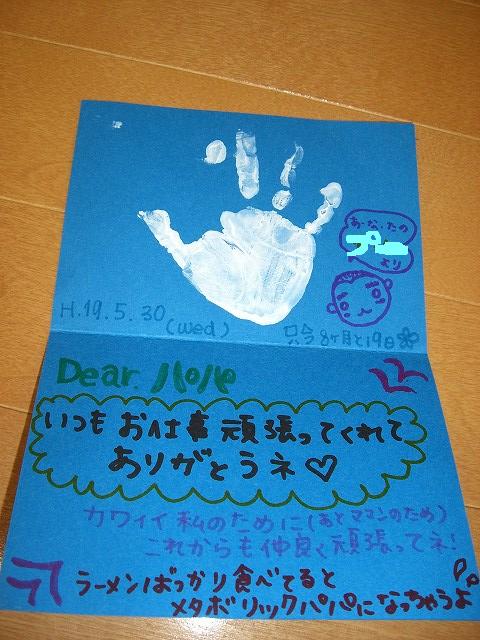 あ・な・たの
プー
より
H.19.5.30
(wed)
8ヶ月と19日
Dear. パパへ
いつもお仕事頑張ってくれて
ありがとうネ♡
カワイイ私のために(あとママンのため)
これからも仲良く頑張ってネ!
ラーメンばっかり食べてると
メタボリックパパになっちゃうよ